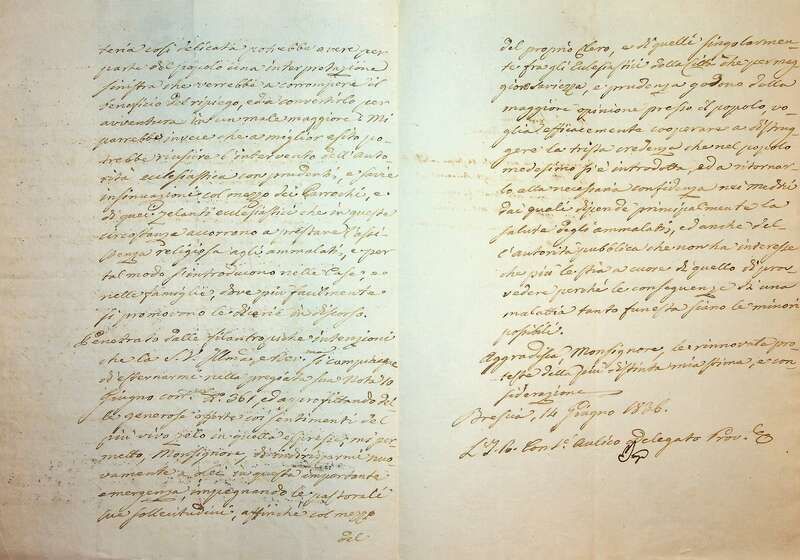 teria così delicata potrebbe avere per
parte del popolo una interpretazione
sinistra che verrebbe a corrompere il
beneficio del ripiego, ed a convertirlo per
avventura in un male maggiore. Mi
parrebbe invece che a miglior esito po-
trebbe riuscire l'intervento dell'Auto-
rità ecclesiastica con prudenti, e savie
insinuazioni col mezzo dei Parrochi, e
di quei zelanti ecclesiastici che in queste
circostanze accorrono a prestare l'assi-
stenza religiosa agli ammalati, e per
tal modo s'introducono nelle Case, e
nelle famiglie, dove più facilmente
si promovono le dicerie in discorso.
Penetrato dalle filantropiche intenzioni
che la S. V. Illma, e Rev.ma si compiacque
di esternarmi nella pregiata sua Nota 10
Giugno corr. N. 361, ed approfittando del-
le generose offerte coi sentimenti del
più vivo zelo in quella espresse, mi per
metto, Monsignore, di indirizzarmi nuo-
vamente a Lei in questa importante
emergenza, impegnando le pastorali
sue sollecitudini, affinchè col mezzo
del
del proprio Clero, e di quelli singolarmen-
te fra gli Ecclesiastici della Città che per mag
gior saviezza, e prudenza godono della
maggiore opinione presso il popolo, vo-
glia efficacemente cooperare a distrug
gere la trista credenza che nel popolo
medesimo si è introdotta, ed a ritornar-
lo alla necessaria confidenza nei medici
dai quali dipende principalmente la
salute degli ammalati, ed anche del
l'autorità pubblica che non ha interesse
che più le stia a cuore di quello di prov
vedere perchè le conseguenze di una
malattia tanto funesta siano le minori
possibili.
Aggradisca, Monsignore, le rinnovate pro-
teste della più distinta mia stima, e con-
siderazione
Brescia, 14 Giugno 1836.
L'I. R. Cons. Aulico Delegato Prov.e